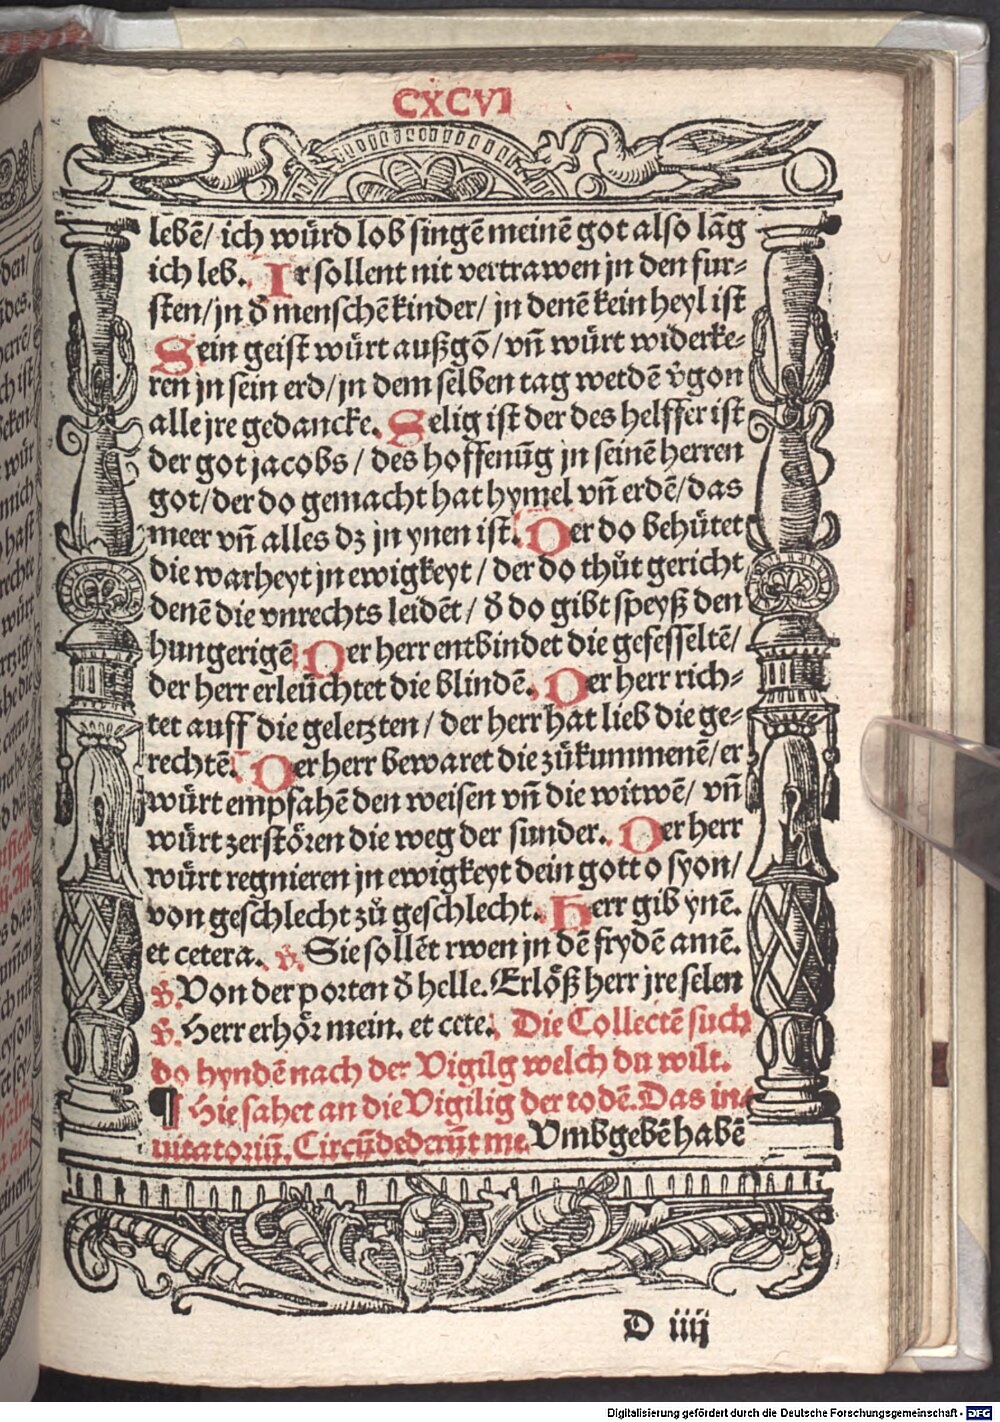 CXCVI
lebē/ ich würd lob singē meinē got also lāg
ich leb. Ir sollent nit vertrawen jn den fur⸗
sten/jn d̕ menschē kinder/ jn denē kein heyl ist
Sein geist würt außgō/ vn̄ würt widerke⸗
ren jn sein erd/jn dem selben tag werdē v̕gon
alle jre gedancke. Selig ist der des helffer ist
der got jacobs / des hoffenūg jn seinē herren
got/der do gemacht hat hymel vn̄ erdē/das
meer vn̄ alles dz jn ynen ist. Der do behütet
die warheyt jn ewigkeyt / der do thůt gericht
denē die vnrechts leidēt / d̕ do gibt speyß den
hungerigē Der herr entbindet die gefesseltē/
der herr erleüchtet die blindē. Der herr rich⸗
tet auff die geletzten / der herr hat lieb die ge⸗
rechtē. Der herr bewaret die zůkummenē/ er
würt empfahē den weisen vn̄ die witwē/ vn̄
würt zerstören die weg der sunder. Der herr
würt regnieren jn ewigkeyt dein gott o syon/
von geschlecht zů geschlecht. Herr gib ynē.
et cetera. ℣. Sie sollēt rwen jn dē frydē amē.
℣. Von der porten d̕ helle. Erlöß herr jre selen
℣. Herr erhör mein. et cete. Die Collectē such
do hyndē nach der Vigilg welch du wilt.
¶ Hie fahet an die Vigilig der todē. Das in⸗
uitatoriū. Circūdederūt me. Vmbgebē habē
D iiij
Digitalisierung gefördert durch die Deutsche Forschungsgemeinschaft - DFG